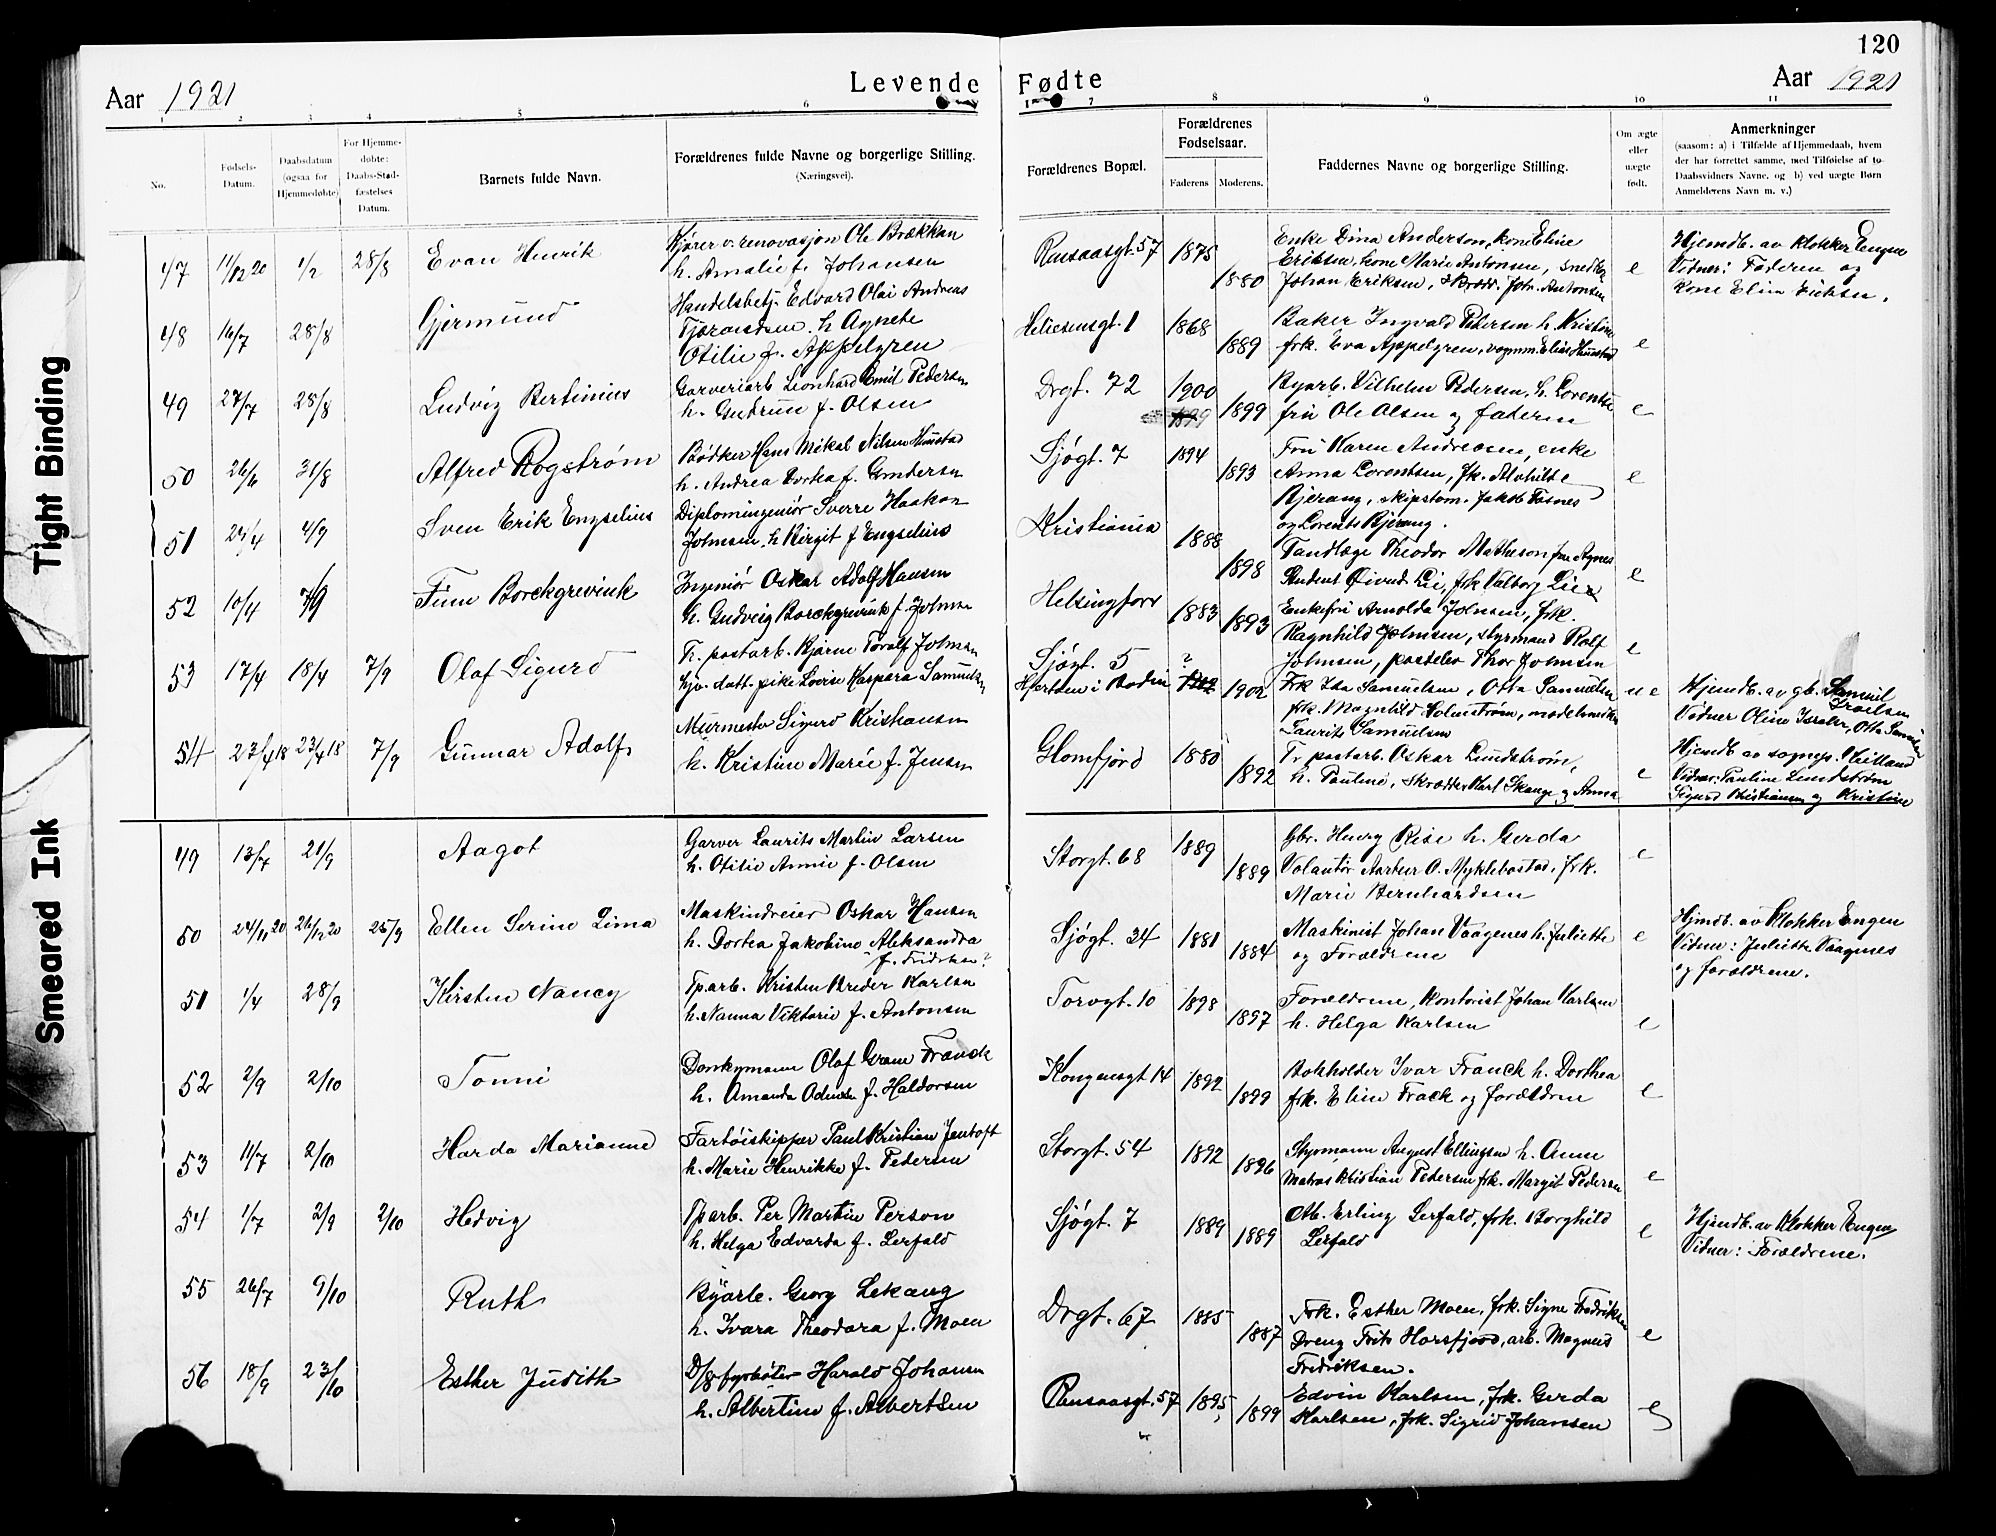 120
Levende Fødte
Aar 1921
Aar 1921
1 2 3 4 5 6 7 8 9 10 11
No.
Fødsels-
Datum.
Daabsdatum
(ogsaa for
Hjemmedøbte)
For Hjemme-
døbte:
Daabs-Stad-
fæstelses
Datum.
Barnets fulde Navn.
Forældrenes fulde Navne og borgerlige Stilling.
(Næringsvei).
Forældrenes Bopæl.
Forældrenes
Fødselsaar.
Faderens
Moderens.
Faddernes Navne og borgerlige Stilling.
Om ægte
eller
uægte
født.
Anmerkninger
(saasom: a) i Tilfælde af Hjemmedaab, hvem
der har forrettet samme, med Tilføielse af to
Daabsvidners Navne, og b) ved uægte Børn
Anmelderens Navn m. v.)
47 11/12 20 1/2 28/8 Evan Henrik
Kjører v. renovasjon Ole Brækkan
h. Amalie f. Johansen
Rensaasgt. 57 1875 1880
Enke Dina Anderson, kone Eline
Eriksen, kone Marie Antonsen, snedker
Johan Eriksen, skrædd. Joh. Antonsen
e
Hjemdb. av klokker Engen
Vidner: Faderen og
kone Elin Eriksen.
48 16/7 28/8 Gjermund
Handelsbetj. Edvard Olai Andreas
h. Agnete
Otilie f. Appelgren
Heliesensgt. 1 1868 1889
Baker Ingvald Petersen h. Kristine
frk. Eva Appelgren, vognm. Elias Hunstad
e
49 27/7 28/8 Ludvig Bertinius
Garveriarb. Leonhard Emil Pedersen
h. Gudrun f. Olsen
Drgt. 72 1900 1899 1899
Byarb. Vilhelm Pedersen, h. Lorentse
fru Ole Olsen og faderen
e
50 26/6 31/8 Alfred Rogstrøm
Bødker Hans Mikal Nilsen Hunstad
h. Andrea Dortea f. Gundersen
Sjøgt. 7 1894 1893
Fru Karen Andreasen, enke
Anna Lorentsen, frk. Mathilde
Bjerang, skipstøm. Jakob Fosnes
og Lorents Bjerang.
e
51 24/4 4/9 Sven Erik Engselius
Diplomingeniør Sverre Haakon
Johnsen, h. Birgit f. Engselius
Kristiania 1888 1898
Tandlæge Theodor Matheson fru Agnes
Student Øivind Lie, frk Valborg Lie
e
52 10/4 7/9 Finn Borchgrevink
Ingeniør Oskar Adolf Hansen
h. Gudveig Borchgrevink f. Johnsen
Helsingfors 1883 1893
Enkefru Arnolda Johnsen, frk.
Ragnhild Johnsen, styrmand Rolf
Johnsen, postelev Thor Johnsen
e
53 17/4 18/4 7/9 Olaf Sigurd
Tr. postarb. Bjarne Toralf Johnsen
Gjv. datt. pike Lovise Kaspara Samuelsen
Sjøgt. 5 ?
Hjertøen i Bodin 1902
Frk Ida Samuelsen, Otto Samuelsen
frk. Magnhild Holmstrøm, modelsnedker
Laurits Samuelsen
u e
Hjemdb. av gb. Samuel
Israelsen
Vidner Oline Israelsen, Otto Samuelsen
54 23/4 18 23/4 18 7/9 Gunnar Adolf
Murmester Sigurd Kristiansen
h. Kristine Marie f. Jensen
Glomfjord 1880 1892
Tr. postarb. Oskar Lundstrøm,
h. Pauline, Skrædder Karl Skauge og Anna
e
Hjemdb. av sognepr. Meilland
Vidner: Pauline Lundstrøm
Sigurd Kristiansen og Kristine
49 13/7 21/9 Aagot
Garver Laurits Martin Larsen
h. Otilie Annie f. Olsen
Storgt. 68 1889 1889
Gbr. Henry Riise h. Gerda
Volantør Aartur O. Myklebostad, frk.
Marie Bernhardsen
e
50 24/11 20 26/12 20 25/9 Ellen Serine Lima
Maskindreier Oskar Hansen
h. Dortea Jakobine Aleksandra
f. Fridriksen?
Sjøgt. 24 1881 1884
Maskinist Johan Vaagenes h. Juliette
og Forældrene
e
Hjmdb. av klokker Engen
Vidner: Juliette Vaagnes
og forældrene.
51 1/4 28/9 Kirsten Nancy
Tparb. Kristen Breder Karlsen
h. Nanna Viktorie f. Antonsen
Torvgt. 10 1898 1897
Forældrene, kontorist Johan Karlsen
h. Helga Karlsen
e
52 2/9 2/10 Tonni
Donkymann Olaf Grane Franck
h. Amanda Odense f. Haldorsen
Kongensgt 14 1892 1899
Bokholder Ivar Franck h. Dorthea
frk. Elin Frack og forældrene
e
53 11/7 2/10 Harda Marianne
Fartøiskipper Paul Kristian Jentoft
h. Marie Henrikke f. Pedersen
Storgt. 54 1892 1896
Styrmann August Ellingsen h. Anne
Matros Kristian Pedersen frk. Margit Pedersen
e
54 1/7 2/9 2/10 Hedvig
Tparb. Per Martin Person
h. Helga Edvarda f. Lerfald
Sjøgt. 7 1889 1889
Erling Lerfald, frk. Borghild
Lerfald
e
Hjemdb. av klokker Engen
Vidner: Forældrene.
55 26/7 9/10 Ruth
Byarb. Georg Lekang
h. Ivara Theodora f. Moen
Drgt. 67 1885 1887
Frk. Esther Moen, frk. Signe Fredriksen
Dreng Frits Horsfjord, arb. Magnus
Fredriksen.
e
56 18/9 23/10 Esther Judith
D/S fyrbøter Harald Johansen
h. Albertine f. Albertsen
Rensaasgt. 57 1895 1899
Edvin Karlsen, frk. Gerda
Karlsen, frk. Sigrid Johansen
e
Tight Binding
Smeared Ink